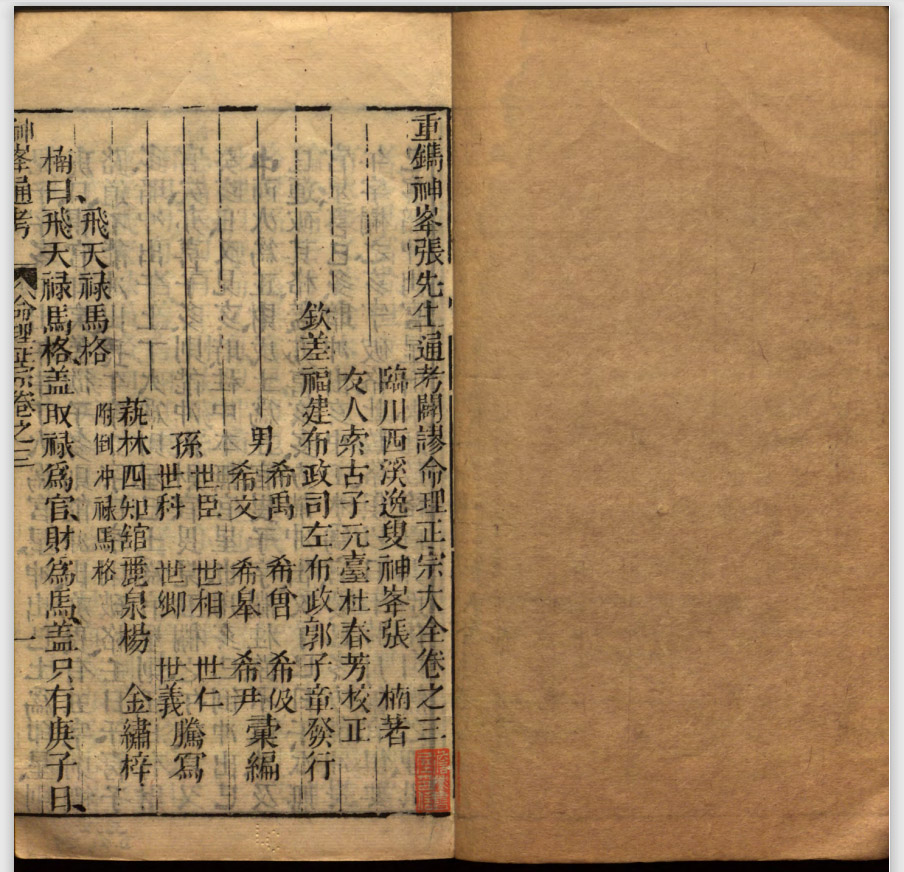 重鐫神峯張先生通考闢謬命理正宗大全卷之三
臨川西溪逸叟神峯張　楠著
友人索古子元臺杜春芳校正
欽差福建布政司左布政郭子章發行
男
希禹　希曾　希伋
希文　希皋　希尹
彙編
孫
世臣　世相　世仁
世科　世卿　世義
騰寫
蓺林四知舘麗泉楊　金繡梓
飛天禄馬格
附倒冲禄馬格
楠曰、飛天禄馬格、蓋取禄爲官、財爲馬、蓋只有庚子日、
神峯通考
命理正宗卷之三
一